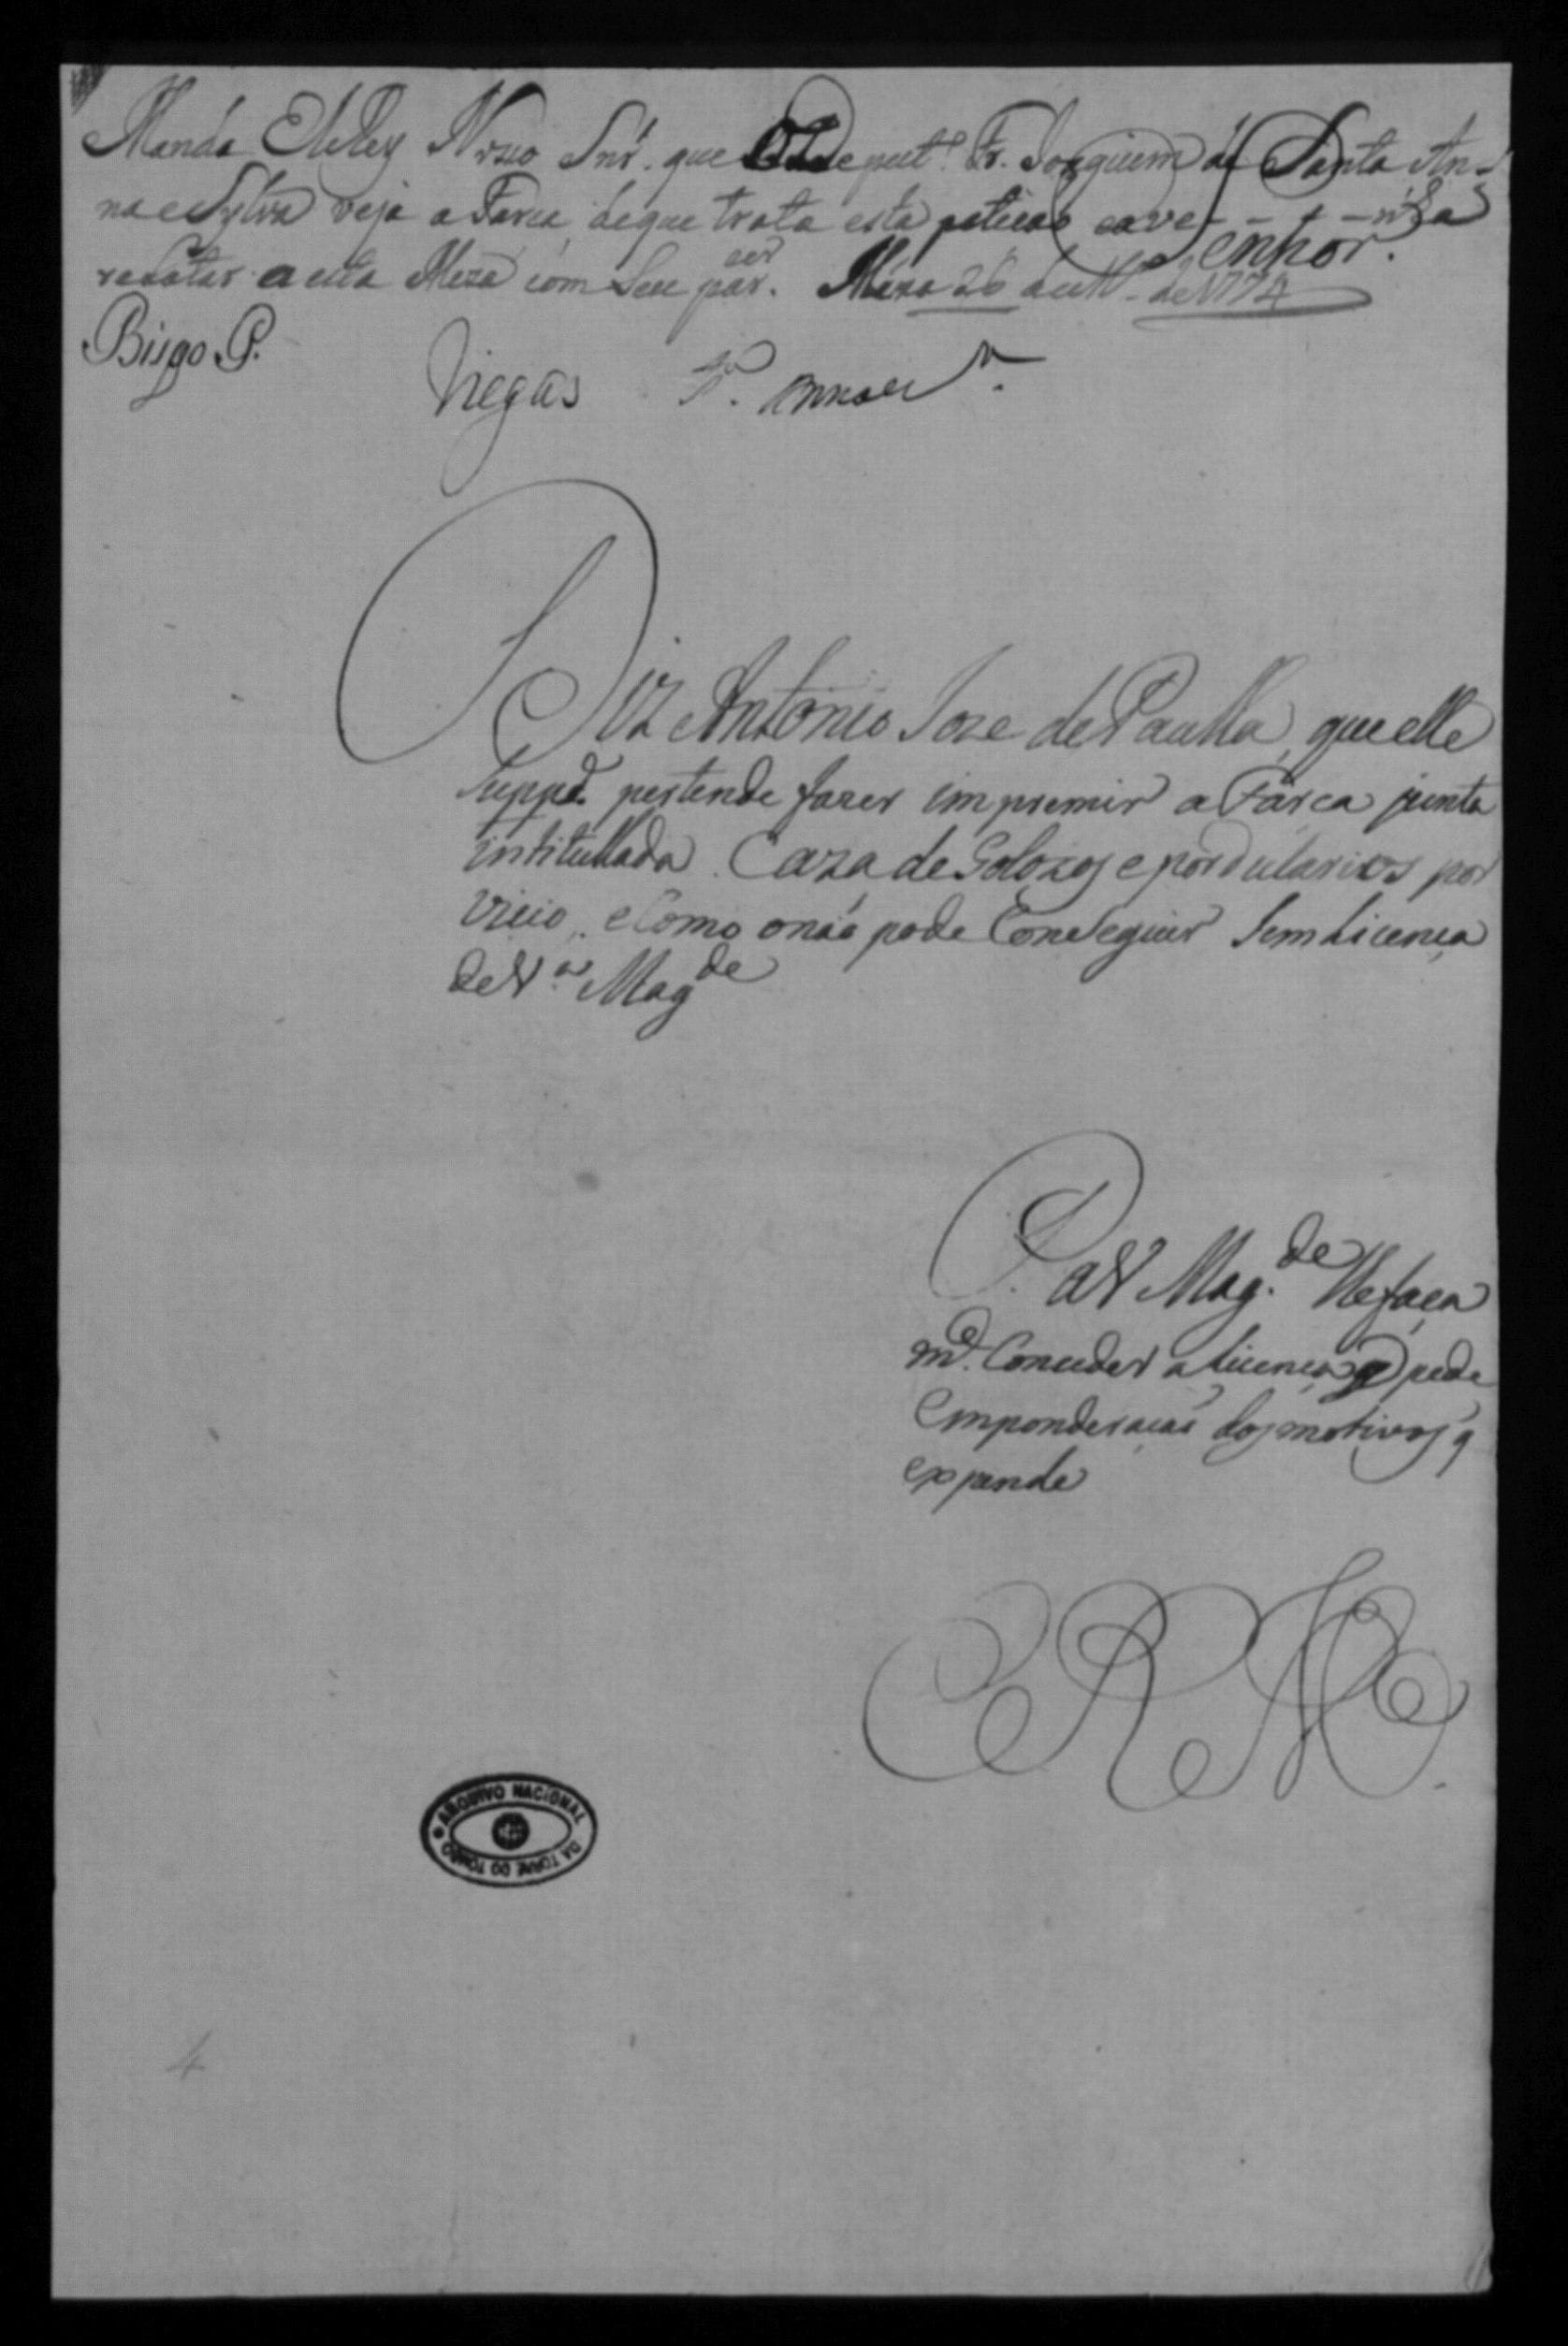 Manda ElRey Nosso Snr. que o Deput.º Fr. Joaquim de Santa An-
na e Sylva veja a Farça de que trata esta petição e a ve - - + - nha
Senhor.
relatar a esta Meza com seu par.cer Meza 26 de de 1774
Bispo P.
Viegas
Diz Antonio Joze de Paulla, que elle
Supp.e pertende fazer impremir a Farça junta
intitullada Caza de Golozos e pordularios por
Vicio, e como o não pode Conseguir Sem Licença
de V.a Mag.de
P. a V Mag.de lhe faça
m.e Conceder a Licença q pede
Em ponderação dos motivos q
expende
E R M.e
ARQUIVO NACIONAL
DA TORRE DO TOMBO
4